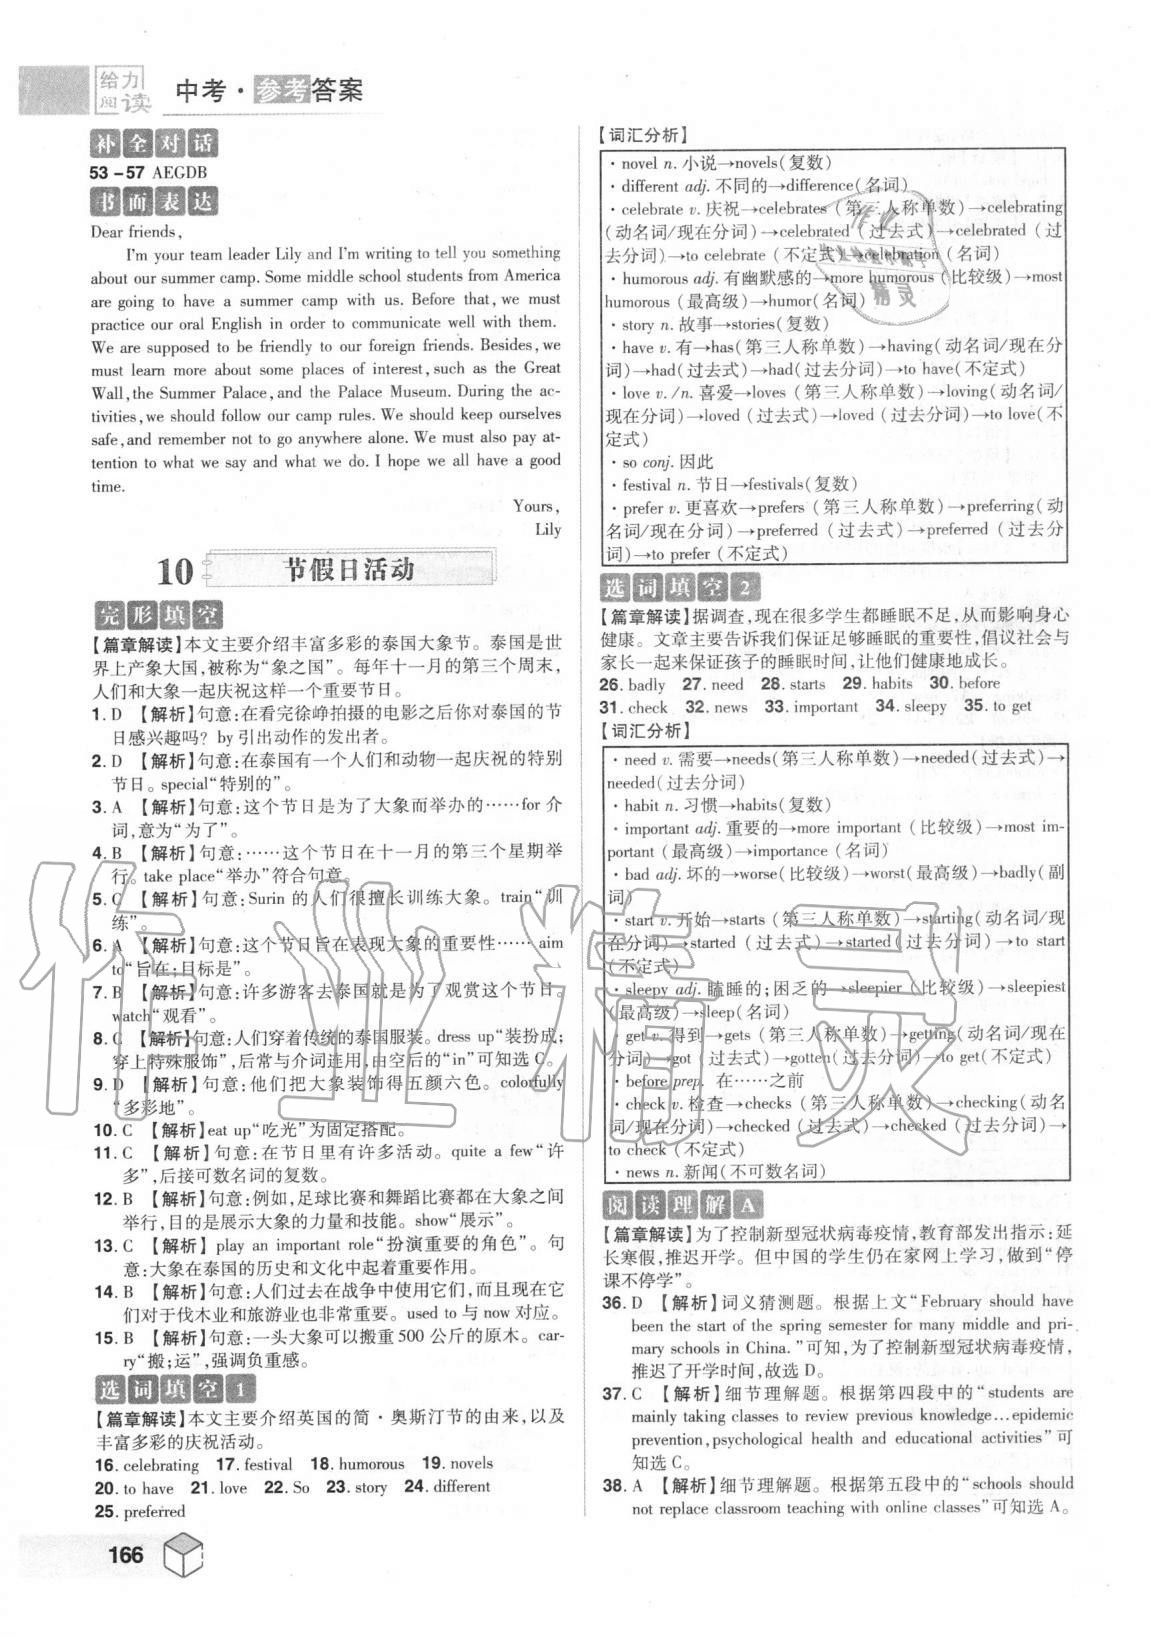 给力
阅读
中考·参考答案
补全对话
53－57 AEGDB
书面表达
Dear friends,
I'm your team leader Lily and I'm writing to tell you something
about our summer camp. Some middle school students from America
are going to have a summer camp with us. Before that, we must
practice our oral English in order to communicate well with them.
We are supposed to be friendly to our foreign friends. Besides, we
must learn more about some places of interest, such as the Great
Wall, the Summer Palace, and the Palace Museum. During the ac-
tivities, we should follow our camp rules. We should keep ourselves
safe, and remember not to go anywhere alone. We must also pay at-
tention to what we say and what we do. I hope we all have a good
time.
Yours,
Lily
10 节假日活动
完形填空
【篇章解读】本文主要介绍丰富多彩的泰国大象节。泰国是世
界上产象大国,被称为“象之国”。每年十一月的第三个周末,
人们和大象一起庆祝这样一个重要节日。
1. D 【解析】句意:在看完徐峥拍摄的电影之后你对泰国的节
日感兴趣吗? by引出动作的发出者。
2. D 【解析】句意:在泰国有一个人们和动物一起庆祝的特别
节日。special“特别的”。
3. A 【解析】句意:这个节日是为了大象而举办的……for 介
词,意为“为了”。
4. B 【解析】句意:……这个节日在十一月的第三个星期举
行。take place“举办”符合句意。
5. C 【解析】句意:Surin 的人们很擅长训练大象。train“训
练”。
6. A 【解析】句意:这个节日旨在表现大象的重要性…… aim
to“旨在;目标是”。
7. B 【解析】句意:许多游客去泰国就是为了观赏这个节日。
watch“观看”。
8. C 【解析】句意:人们穿着传统的泰国服装。dress up“装扮成;
穿上特殊服饰”,后常与介词连用,由空后的“in”可知选 C。
9. D 【解析】句意:他们把大象装饰得五颜六色。colorfully
“多彩地”。
10. C 【解析】eat up“吃光”为固定搭配。
11. C 【解析】句意:在节日里有许多活动。quite a few“许
多”,后接可数名词的复数。
12. B 【解析】句意:例如,足球比赛和舞蹈比赛都在大象之间
举行,目的是展示大象的力量和技能。show“展示”。
13. C 【解析】play an important role“扮演重要的角色”。句
意:大象在泰国的历史和文化中起着重要作用。
14. B 【解析】句意:人们过去在战争中使用它们,而且现在它
们对于伐木业和旅游业也非常重要。used to 与 now 对应。
15. B 【解析】句意:一头大象可以搬重 500 公斤的原木。car-
ry“搬;运”,强调负重感。
选词填空1
【篇章解读】本文主要介绍英国的简·奥斯汀节的由来,以及
丰富多彩的庆祝活动。
16. celebrating 17. festival 18. humorous 19. novels
20. to have 21. love 22. So 23. story 24. different
25. preferred
166
【词汇分析】
· novel n. 小说→novels(复数)
· different adj. 不同的→difference(名词)
· celebrate v. 庆祝→celebrates (第三人称单数)→celebrating
(动名词/现在分词)→celebrated (过去式)→celebrated (过
去分词)→to celebrate (不定式)→celebration (名词)
· humorous adj. 有幽默感的→more humorous (比较级)→most
humorous (最高级)→humor(名词)
· story n. 故事→stories(复数)
· have v. 有→has(第三人称单数)→having(动名词/现在分
词)→had(过去式)→had(过去分词)→to have(不定式)
· love v./n. 喜爱→loves (第三人称单数)→loving(动名词/
现在分词)→loved (过去式)→loved (过去分词)→to love(不
定式)
· so conj. 因此
· festival n. 节日→festivals(复数)
· prefer v. 更喜欢→prefers (第三人称单数)→preferring(动
名词/现在分词)→preferred (过去式)→preferred (过去分
词)→to prefer (不定式)
选词填空2
【篇章解读】据调查,现在很多学生都睡眠不足,从而影响身心
健康。文章主要告诉我们保证足够睡眠的重要性,倡议社会与
家长一起来保证孩子的睡眠时间,让他们健康地成长。
26. badly 27. need 28. starts 29. habits 30. before
31. check 32. news 33. important 34. sleepy 35. to get
【词汇分析】
· need v. 需要→needs(第三人称单数)→needed(过去式)→
needed(过去分词)
· habit n. 习惯→habits(复数)
· important adj. 重要的→more important (比较级)→most im-
portant (最高级)→importance (名词)
· bad adj. 坏的→worse(比较级)→worst(最高级)→badly(副
词)
· start v. 开始→starts (第三人称单数)→starting(动名词/现
在分词)→started (过去式)→started(过去分词)→to start
(不定式)
· sleepy adj. 瞌睡的;困乏的→sleepier (比较级)→sleepiest
(最高级)→sleep(名词)
· get v. 得到→gets (第三人称单数)→getting(动名词/现在
分词)→got (过去式)→gotten(过去分词)→to get(不定式)
· before prep. 在……之前
· check v. 检查→checks (第三人称单数)→checking(动名
词/现在分词)→checked (过去式)→checked(过去分词)→
to check (不定式)
· news n. 新闻(不可数名词)
阅读理解A
【篇章解读】为了控制新型冠状病毒疫情,教育部发出指示:延
长寒假,推迟开学。但中国的学生仍在家网上学习,做到“停
课不停学”。
36. D 【解析】词义猜测题。根据上文“February should have
been the start of the spring semester for many middle and pri-
mary schools in China.”可知,为了控制新型冠状病毒疫情,
推迟了开学时间,故选 D。
37. C 【解析】细节理解题。根据第四段中的“students are
mainly taking classes to review previous knowledge...epidemic
prevention, psychological health and educational activities”可
知选 C。
38. A 【解析】细节理解题。根据第五段中的“schools should
not replace classroom teaching with online classes”可知选 A。
作业精灵